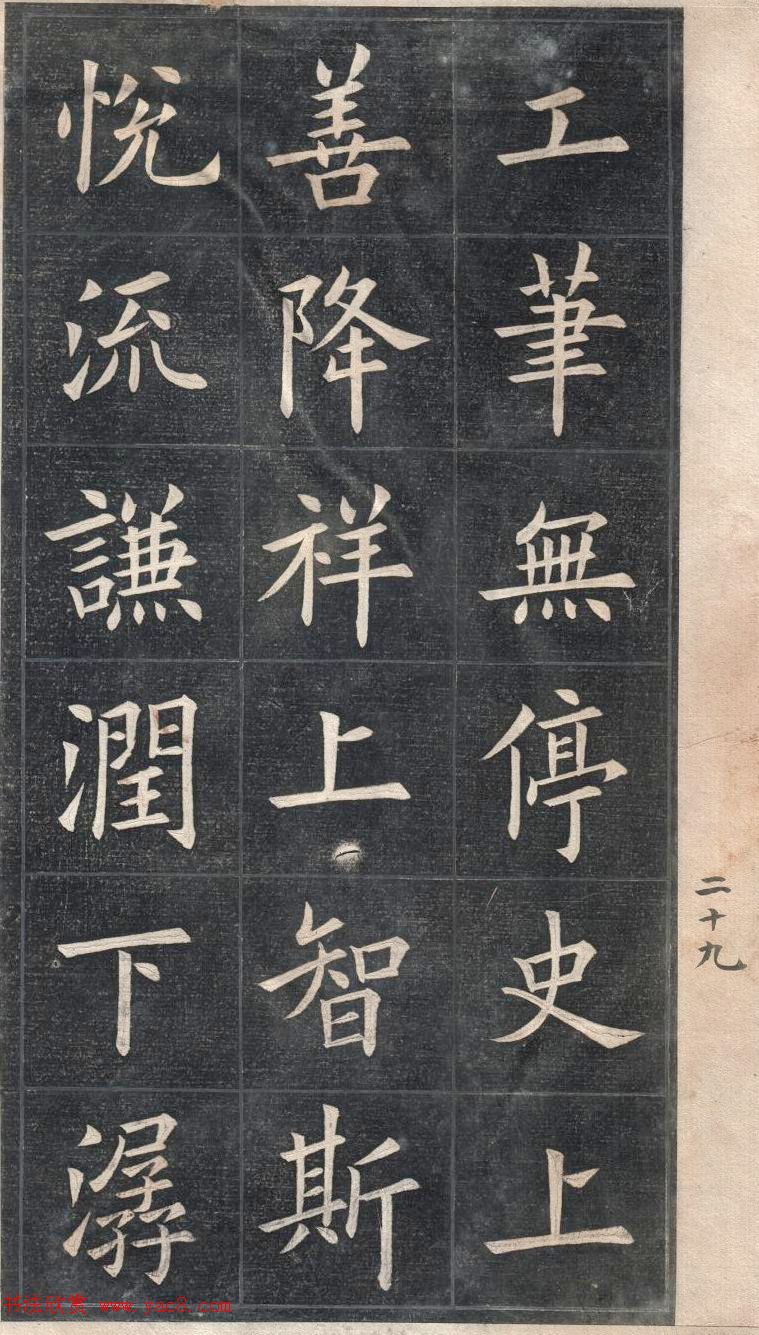 二十九
工筆無停史上
善降祥上智斯
悅流謙潤下潺
书法欣赏 www.yac8.com